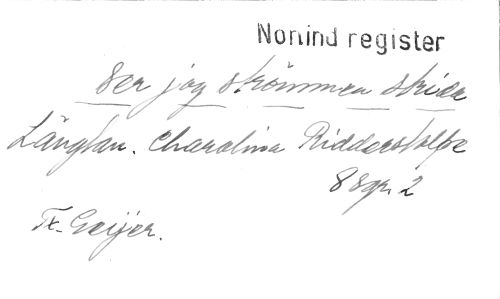 Norlind register
Ser jag strömmen skrida
Längtan. Charolina Ridderstolpe
8 sgr. 2
Tx. Geijer.